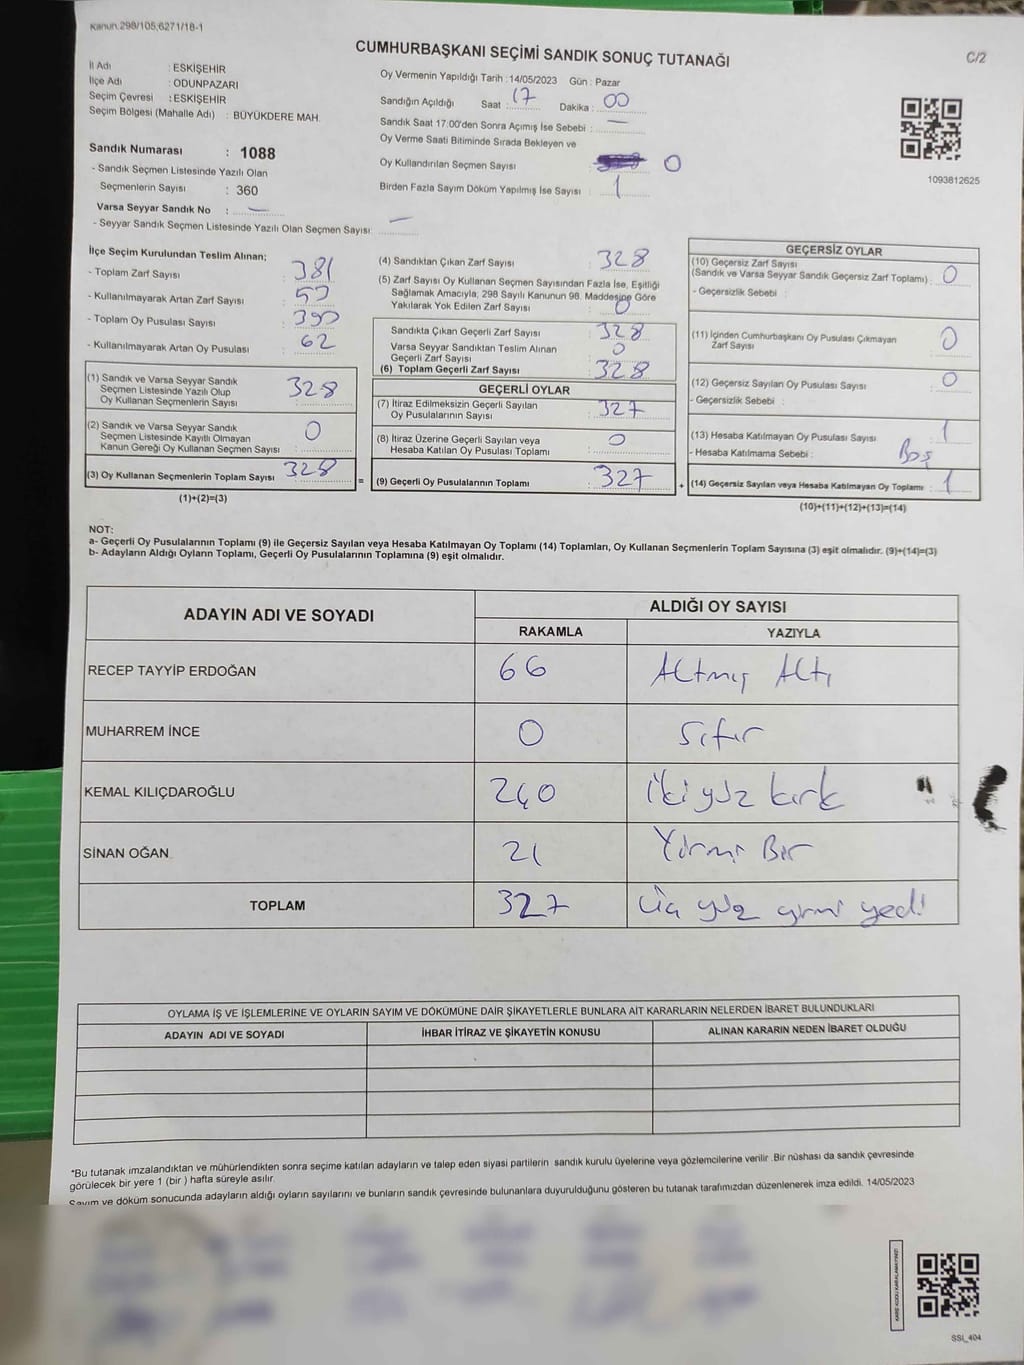 Kanun:298/105,6271/18-1
CUMHURBAŞKANI SEÇİMİ SANDIK SONUÇ TUTANAĞI
C/2
İl Adı : ESKİŞEHİR
İlçe Adı : ODUNPAZARI
Seçim Çevresi : ESKİŞEHİR
Seçim Bölgesi (Mahalle Adı) : BÜYÜKDERE MAH.
Sandık Numarası : 1088
- Sandık Seçmen Listesinde Yazılı Olan
Seçmenlerin Sayısı : 360
Varsa Seyyar Sandık No : —
- Seyyar Sandık Seçmen Listesinde Yazılı Olan Seçmen Sayısı: —
Oy Vermenin Yapıldığı Tarih : 14/05/2023 Gün : Pazar
Sandığın Açıldığı Saat : 17 Dakika : 00
Sandık Saat 17:00'den Sonra Açımış İse Sebebi : —
Oy Verme Saati Bitiminde Sırada Bekleyen ve
Oy Kullandırılan Seçmen Sayısı : 0
Birden Fazla Sayım Döküm Yapılmış İse Sayısı : 1
1093812625
İlçe Seçim Kurulundan Teslim Alınan;
- Toplam Zarf Sayısı : 381
- Kullanılmayarak Artan Zarf Sayısı :
- Toplam Oy Pusulası Sayısı : 390
- Kullanılmayarak Artan Oy Pusulası : 62
(1) Sandık ve Varsa Seyyar Sandık
Seçmen Listesinde Yazılı Olup
Oy Kullanan Seçmenlerin Sayısı : 328
(2) Sandık ve Varsa Seyyar Sandık
Seçmen Listesinde Kayıtlı Olmayan
Kanun Gereği Oy Kullanan Seçmen Sayısı : 0
(3) Oy Kullanan Seçmenlerin Toplam Sayısı : 328
(1)+(2)=(3)
(4) Sandıktan Çıkan Zarf Sayısı : 328
(5) Zarf Sayısı Oy Kullanan Seçmen Sayısından Fazla İse, Eşitliği
Sağlamak Amacıyla, 298 Sayılı Kanunun 98. Maddesine Göre
Yakılarak Yok Edilen Zarf Sayısı : 0
Sandıkta Çıkan Geçerli Zarf Sayısı : 328
Varsa Seyyar Sandıktan Teslim Alınan
Geçerli Zarf Sayısı : 0
(6) Toplam Geçerli Zarf Sayısı : 328
GEÇERLİ OYLAR
(7) İtiraz Edilmeksizin Geçerli Sayılan
Oy Pusulalarının Sayısı : 327
(8) İtiraz Üzerine Geçerli Sayılan veya
Hesaba Katılan Oy Pusulası Toplamı : 0
(9) Geçerli Oy Pusulalarının Toplamı : 327
GEÇERSİZ OYLAR
(10) Geçersiz Zarf Sayısı
(Sandık ve Varsa Seyyar Sandık Geçersiz Zarf Toplamı) : 0
- Geçersizlik Sebebi :
(11) İçinden Cumhurbaşkanı Oy Pusulası Çıkmayan
Zarf Sayısı : 0
(12) Geçersiz Sayılan Oy Pusulası Sayısı : 0
- Geçersizlik Sebebi :
(13) Hesaba Katılmayan Oy Pusulası Sayısı : 1
- Hesaba Katılmama Sebebi : Boş
(14) Geçersiz Sayılan veya Hesaba Katılmayan Oy Toplamı : 1
(10)+(11)+(12)+(13)=(14)
NOT:
a- Geçerli Oy Pusulalarının Toplamı (9) ile Geçersiz Sayılan veya Hesaba Katılmayan Oy Toplamı (14) Toplamları, Oy Kullanan Seçmenlerin Toplam Sayısına (3) eşit olmalıdır. (9)+(14)=(3)
b- Adayların Aldığı Oyların Toplamı, Geçerli Oy Pusulalarının Toplamına (9) eşit olmalıdır.
ADAYIN ADI VE SOYADI ALDIĞI OY SAYISI
RAKAMLA YAZIYLA
RECEP TAYYİP ERDOĞAN 66 Altmış Altı
MUHARREM İNCE 0 Sıfır
KEMAL KILIÇDAROĞLU 240 İki yüz kırk
SİNAN OĞAN 21 Yirmi Bir
TOPLAM 327 Üç yüz yirmi yedi
OYLAMA İŞ VE İŞLEMLERİNE VE OYLARIN SAYIM VE DÖKÜMÜNE DAİR ŞİKAYETLERLE BUNLARA AİT KARARLARIN NELERDEN İBARET BULUNDUKLARI
ADAYIN ADI VE SOYADI İHBAR İTİRAZ VE ŞİKAYETİN KONUSU ALINAN KARARIN NEDEN İBARET OLDUĞU
*Bu tutanak imzalandıktan ve mühürlendikten sonra seçime katılan adayların ve talep eden siyasi partilerin sandık kurulu üyelerine veya gözlemcilerine verilir .Bir nüshası da sandık çevresinde
görülecek bir yere 1 (bir ) hafta süreyle asılır.
Sayım ve döküm sonucunda adayların aldığı oyların sayılarını ve bunların sandık çevresinde bulunanlara duyurulduğunu gösteren bu tutanak tarafımızdan düzenlenerek imza edildi. 14/05/2023
KARE KODU KARALAMAYINIZ!
SSI_404